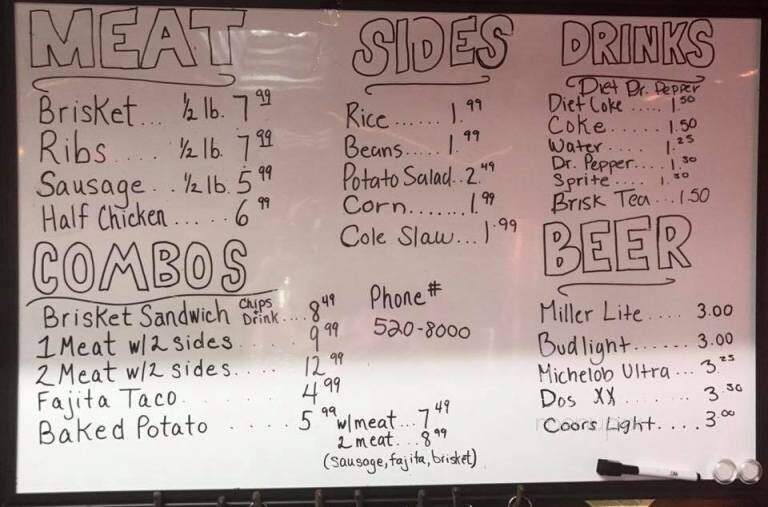 MEAT
Brisket... 1/2 lb. 7 99
Ribs .... 1/2 lb. 7 99
Sausage .. 1/2 lb. 5 99
Half Chicken ..... 6 99
COMBOS
Brisket Sandwich Chips Drink .... 8 49
1 Meat w/2 sides. 9 99
2 Meat w/2 sides.... 12 99
Fajita Taco ..... 4 99
Baked Potato .... 5 99
w/meat... 7 49
2 meat... 8 99
(sausage, fajita, brisket)
SIDES
Rice ...... 1.99
Beans.... 1.99
Potato Salad.. 2.49
Corn....... 1.99
Cole Slaw... 1.99
Phone #
520-8000
DRINKS
Diet Dr. Pepper
Diet Coke ..... 1.50
Coke ..... 1.50
Water .... 1.25
Dr. Pepper.... 1.50
Sprite .... 1.50
Brisk Tea... 1.50
BEER
Miller Lite .... 3.00
Bud light...... 3.00
Michelob Ultra... 3.25
Dos XX ..... 3.50
Coors Light..... 3.00